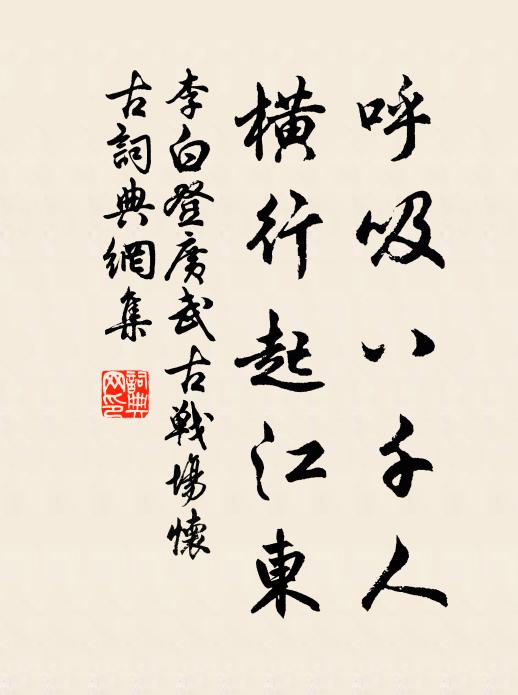 呼吸八千人
橫行起江東
李白登廣武古戰場懷
古詞典網集
詞典
网印